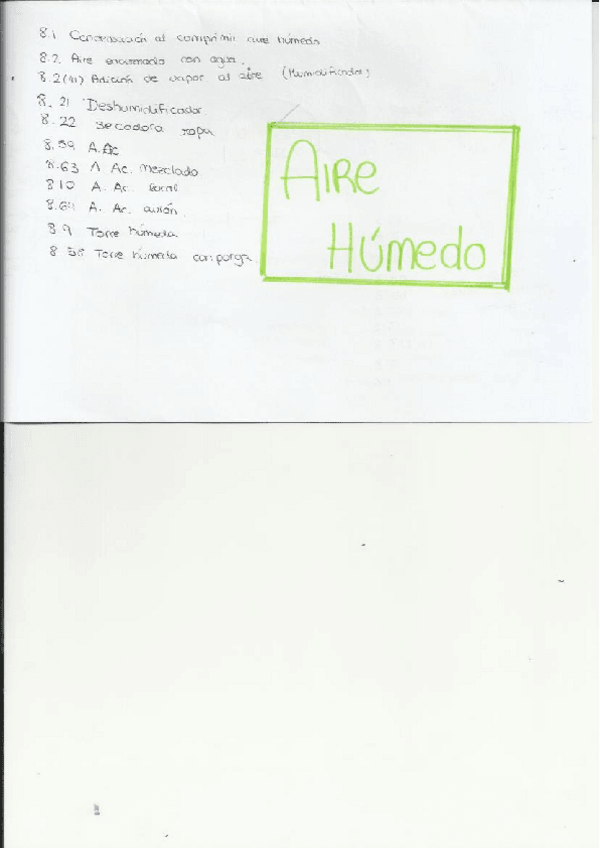 8.1 Condensación al comprimir aire húmedo
8.2. Aire enfriado con agua.
8.2(41) Adición de vapor al aire (Humidificador)
8.21 Deshumidificador
8.22 secadora ropa
8.59 A.Ac
8.63 A. Ac. Mezclado
8.10 A. Ac. local
8.64 A. Ac. avión.
8.9 Torre húmeda
8.58 Torre húmeda con purga.
AIRE
HÚMEDO